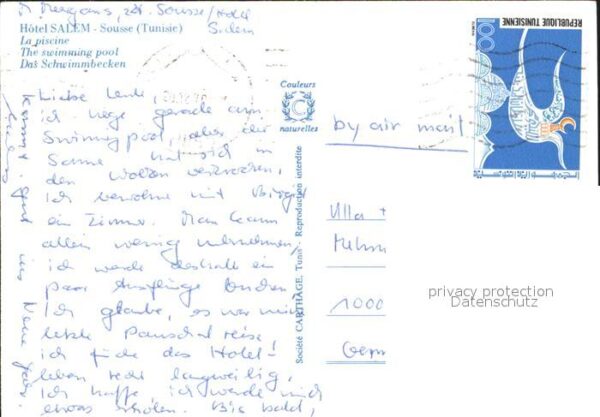 Hôtel SALEM - Sousse (Tunisie)
La piscine
The swimming pool
Das Schwimmbecken
Couleurs
naturelles
Société CARTHAGE, Tunis - Reproduction interdite
REPUBLIQUE TUNISIENNE
100
zZt. Sousse/Hotel
Salem
Liebe Leute,
ich liege gerade am
Swimmingpool, aber die
Sonne hat sich in
den Wolken verkrochen.
Ich bewohne mit Birgit
ein Zimmer. Man kann
allein wenig unternehmen,
ich werde deshalb ein
paar Ausflüge buchen.
Ich glaube, es war meine
letzte Pauschalreise!
Ich finde das Hotel-
leben recht langweilig.
Ich hoffe ich werde mich
etwas erholen. Bis bald,
kommt gut ins Neue Jahr.
by air mail
Ulla +
1000
Germ
privacy protection
Datenschutz